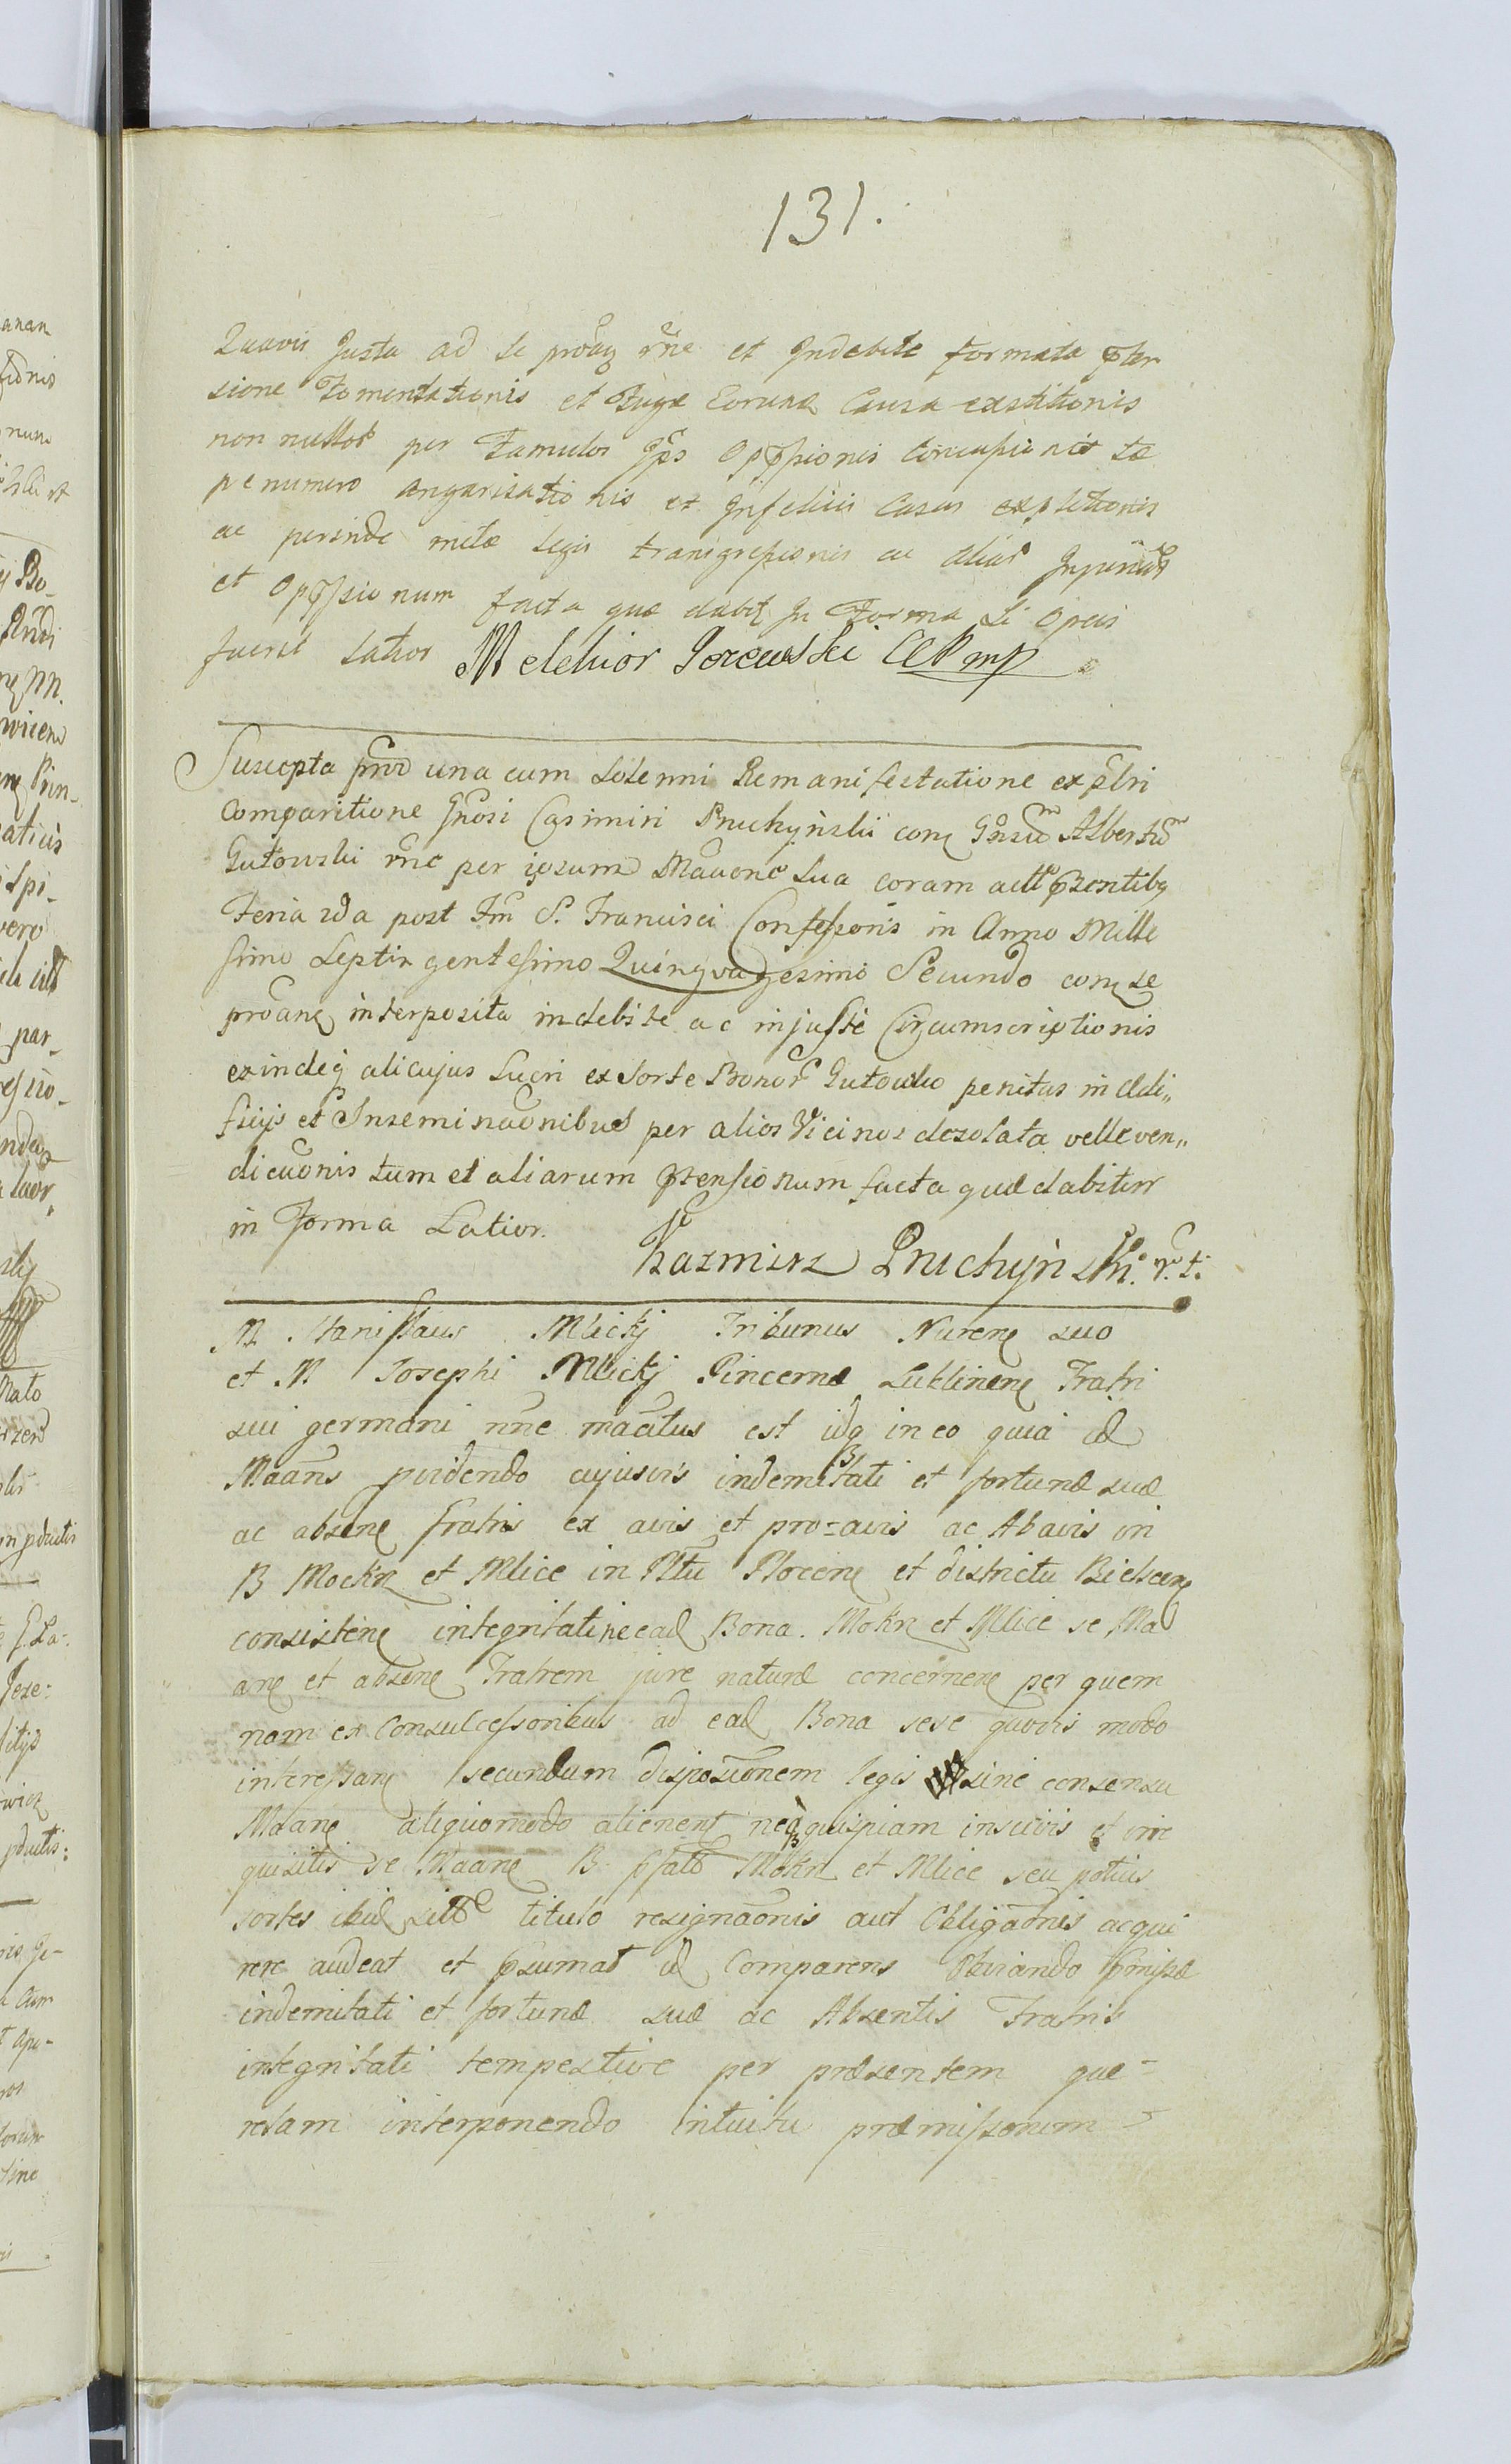 131.
Quavis Justa ad se proãq rñe et Indebite formata pten
sione Fomentationis et Fugæ Eorund Causa exstitionis
non nullos per Famulos Jps Opp̃sionis Concussionis sæ
penumero angarisationis et Infelicis Casus expletionis
ac perinde metæ legis transgressionis ac alias Injurias
et Opp̃ssionum facta quæ dabit In Forma Si Opus
fuerit Latior Melchior Jezewski CCP mp
Suscepta prnñ una cum Solenni Remanifestatione ex pstri
Comparitione Gñosi Casimiri Pruchÿnskii con Gñsum Albertum
Gutowski rñe per ipsum Mãone Sua coram actis præsentibq
Feria 2da post Fm S. Francisci Confessoris in Anno Mille
simo Septin gentesimo Quinqvagesimo Secundo con se
prõanq interposita indebite ac injuste Circumscriptionis
exindeq alicujus Lucri ex Sorte Bonor Gutowo penitus in Ædi„
ficijs et Inseminãonibus per alios Vicinos desolata velle ven„
dicãonis tum et aliarum ptensionum facta quæ dabitur
in Forma Latior.
Kazmirz Pruchÿnski. r. t.
M Stanislaus Mlickj Tribunus Nuren suo
et M Josephi Mlickj Pincernæ Lublinen Fratri
sui germani nñe mãatus est idq in eo quia id
Mãans pvidendo cujusvis indemnitati et fortunæ suæ
ac absen fratris ex avis et pro=avis ac Abavis in
B Mockr et Mlice in Pltu Plocen et districtu Bielscen
consisten integritati ne ead Bona. Mokr et Mlice se Ma
an et absen Fratrem jure naturæ concernen per quem
nam ex Consuccessoribus ad ead Bona sese quovis modo
interessan secundum dispositionem legis sine consensu
Mãan aliquomodo alienent neq quispiam insciis et irre
quisitis se Mãan B. pfatt Mokr et Mlice seu potius
sortes ibid sitt titulo resignãonis aut Obligãonis acqui
rere audeat et psumat id Comparens Obviando pmissæ
indemitati et fortunæ suæ ac Absentis Fratris
integritati tempestive per præsentem que-
relam interponendo intuitu præmissorum